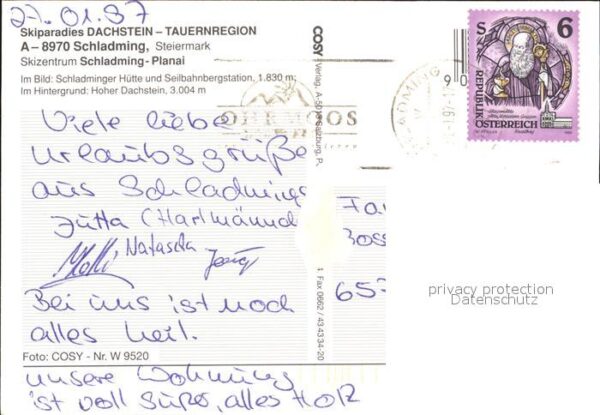 27.01.97
Skiparadies DACHSTEIN – TAUERNREGION
A – 8970 Schladming, Steiermark
Skizentrum Schladming - Planai
Im Bild: Schladminger Hütte und Seilbahnbergstation, 1.830 m;
Im Hintergrund: Hoher Dachstein, 3.004 m
Viele liebe
Urlaubsgrüße
aus Schladming
Jutta (Hartmännchen
Natascha
Bei uns ist noch
alles heil.
Foto: COSY - Nr. W 9520
unsere Wohnung
ist voll süß, alles Holz
COSY Verlag, A-5016 Salzburg, P.
1 Fax 0662/43 43 34-20
6
REPUBLIK
ÖSTERREICH
90
Fa
Boss
657
privacy protection
Datenschutz